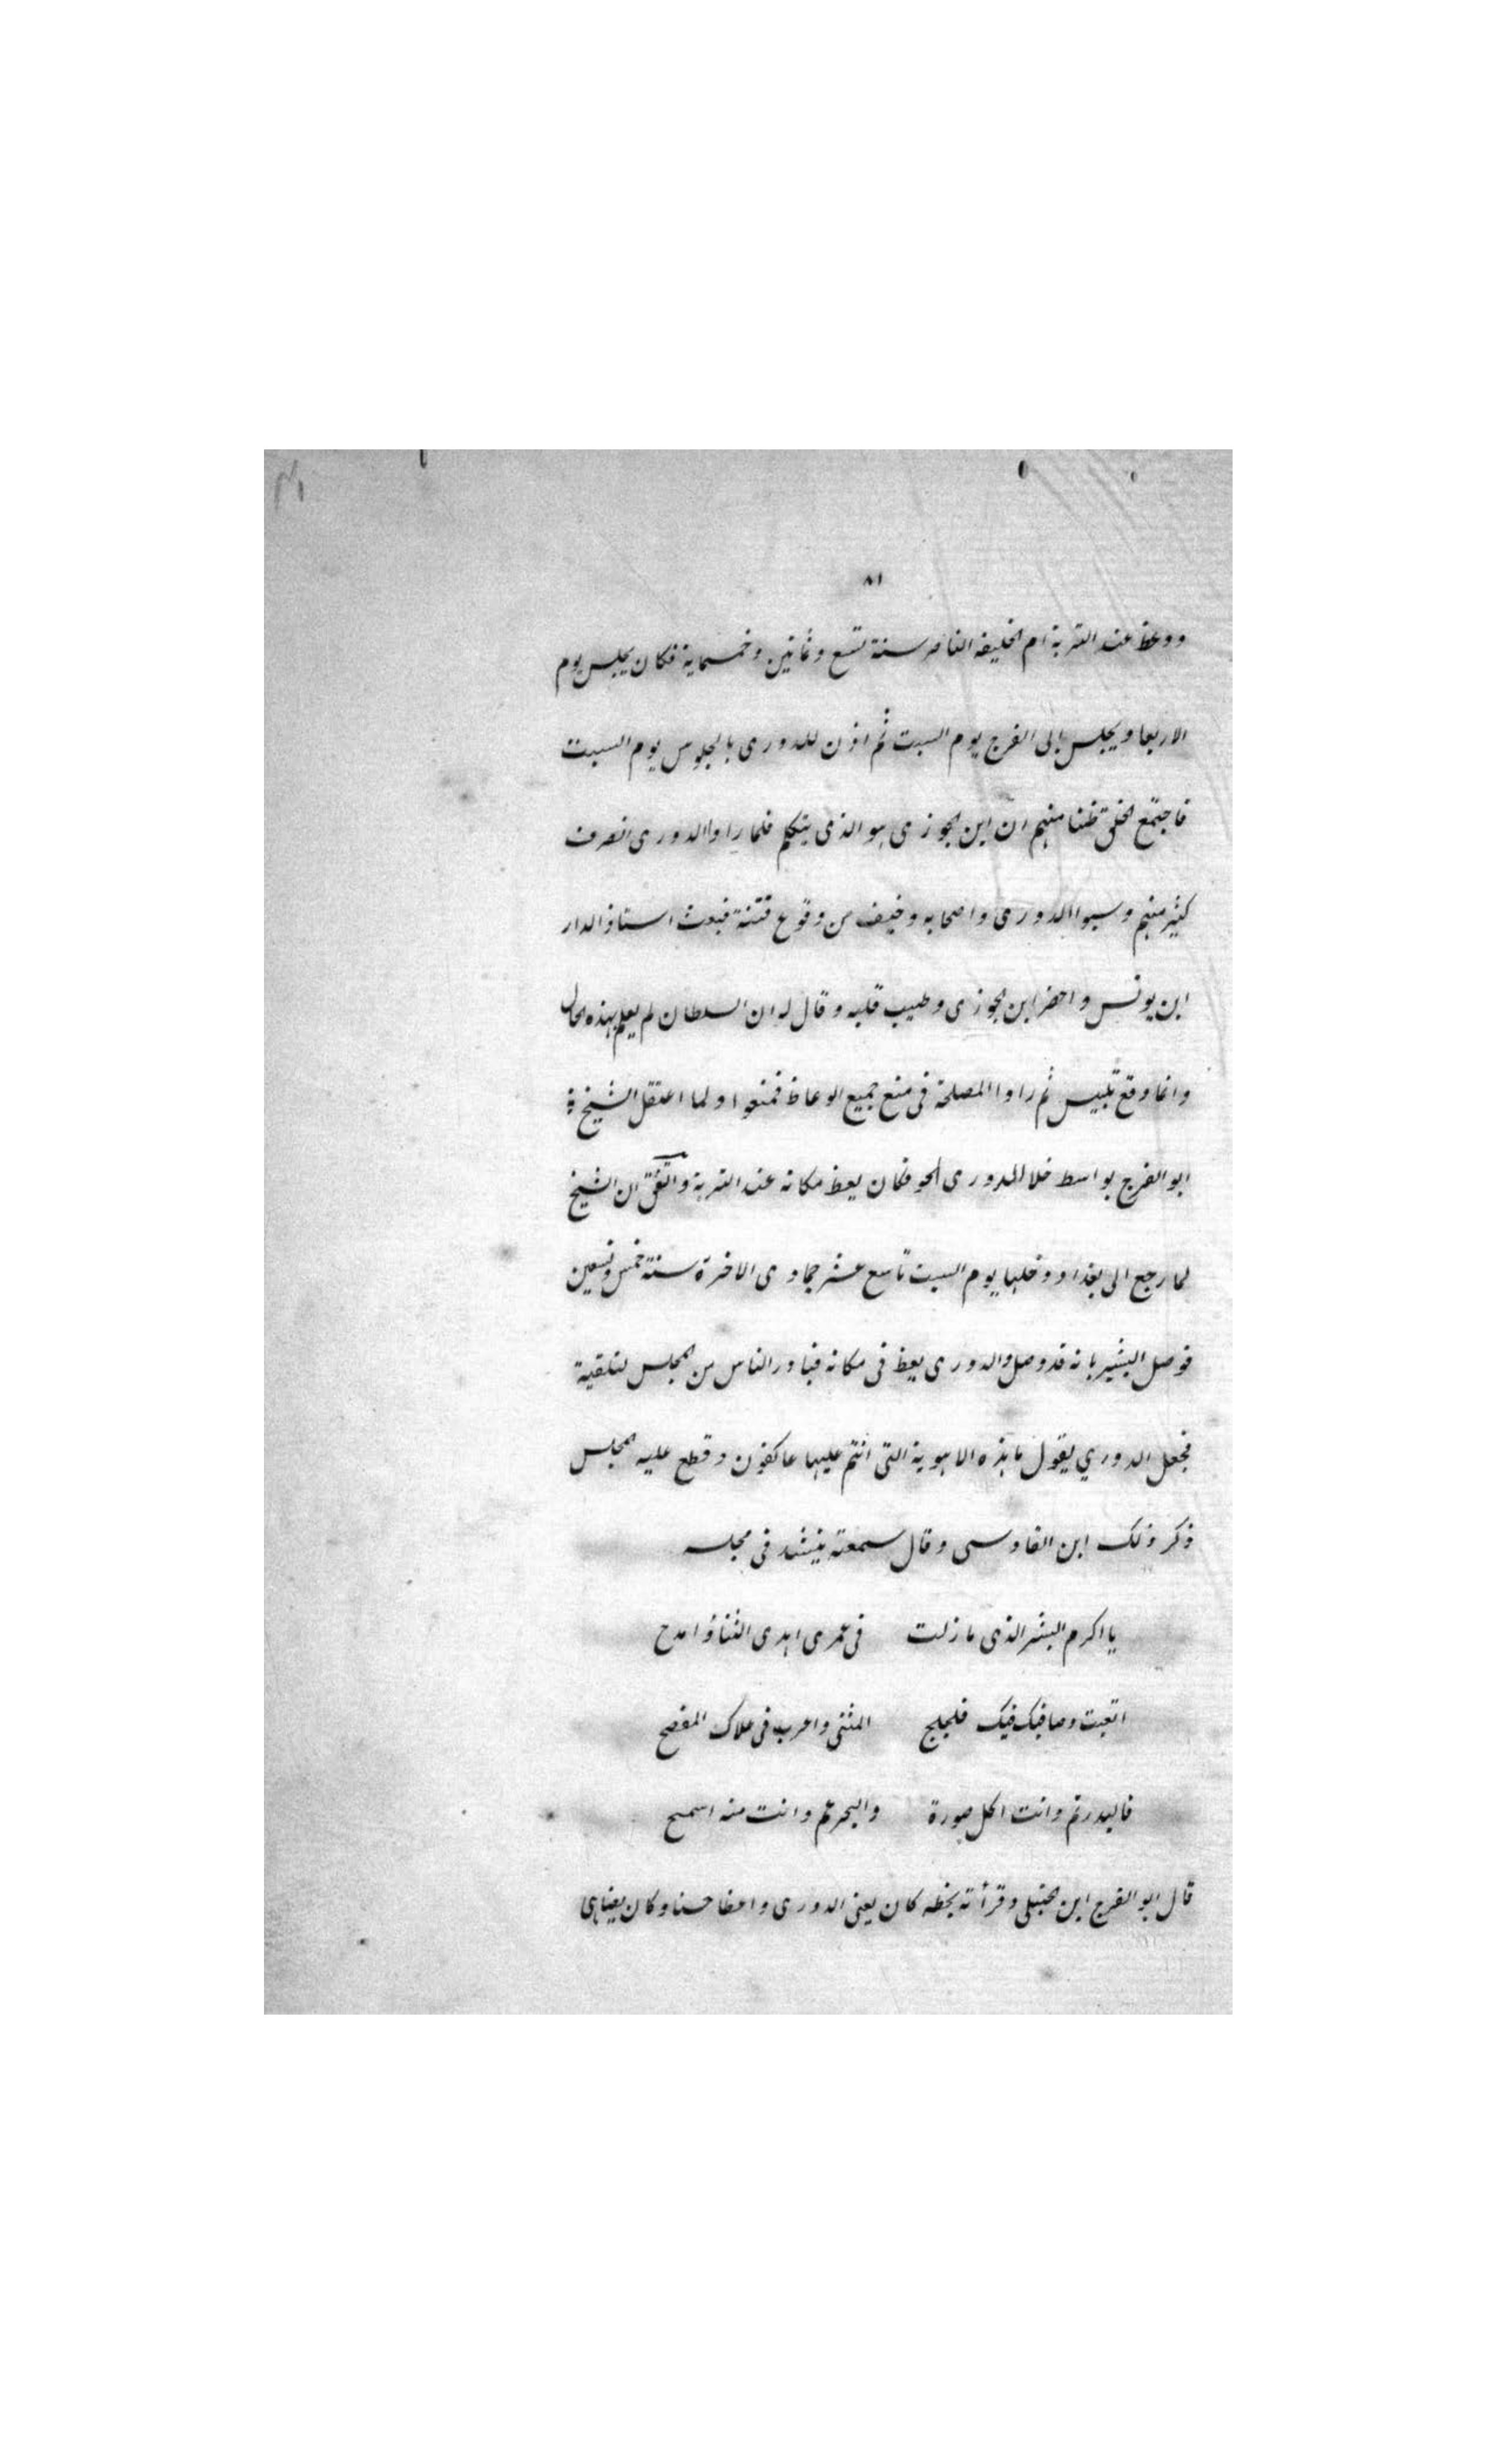 ٨١
ووعظ عند التربة ام الخليفه الناصر سنة تسع وثمانين وخمسماية فكان يجلس يوم
الاربعا ويجلس ابى الفرج يوم السبت ثم اذن للدورى بالجلوس يوم السبت
فاجتمع الخلق ظنا منهم ان ابن الجوزى هو الذى يتكلم فلما راوا الدورى انصرف
كثير منهم وسبوا الدورى واصحابه وخيف من وقوع فتنة فبعث استاذ الدار
ابن يونس واحضر ابن الجوزى وطيب قلبه وقال له ان السلطان لم يعلم بهذه الحال
وانما وقع تلبيس ثم راوا المصلحة فى منع جميع الوعاظ فمنعوا ولما اعتقل الشيخ
ابو الفرج بواسط خلا للدورى الجو فكان يعظ مكانه عند التربة واتفق ان الشيخ
لما رجع الى بغداد ودخلها يوم السبت تاسع عشر جمادى الاخرة سنة خمس وتسعين
فوصل البشير بانه قد وصل والدورى يعظ فى مكانه فبادر الناس من المجلس لتلقية
فجعل الدوري يقول ما هذه الاهوية التى انتم عليها عاكفون وقطع عليه المجلس
ذكر ذلك ابن القادسى وقال سمعته ينشد فى مجلسه
يا اكرم البشر الذى ما زلت فى عمرى اهدى الثناؤ امدح
اتعبت وصافيك فيك فلجلج المثنى واعرب فى علاك المفصح
فالبدر تم وانت اكمل صورة والبحر عم وانت منه اسمح
قال ابو الفرج ابن الحنبلى وقرأته بخطه كان يعنى الدورى واعظا حسنا وكان يضاهى